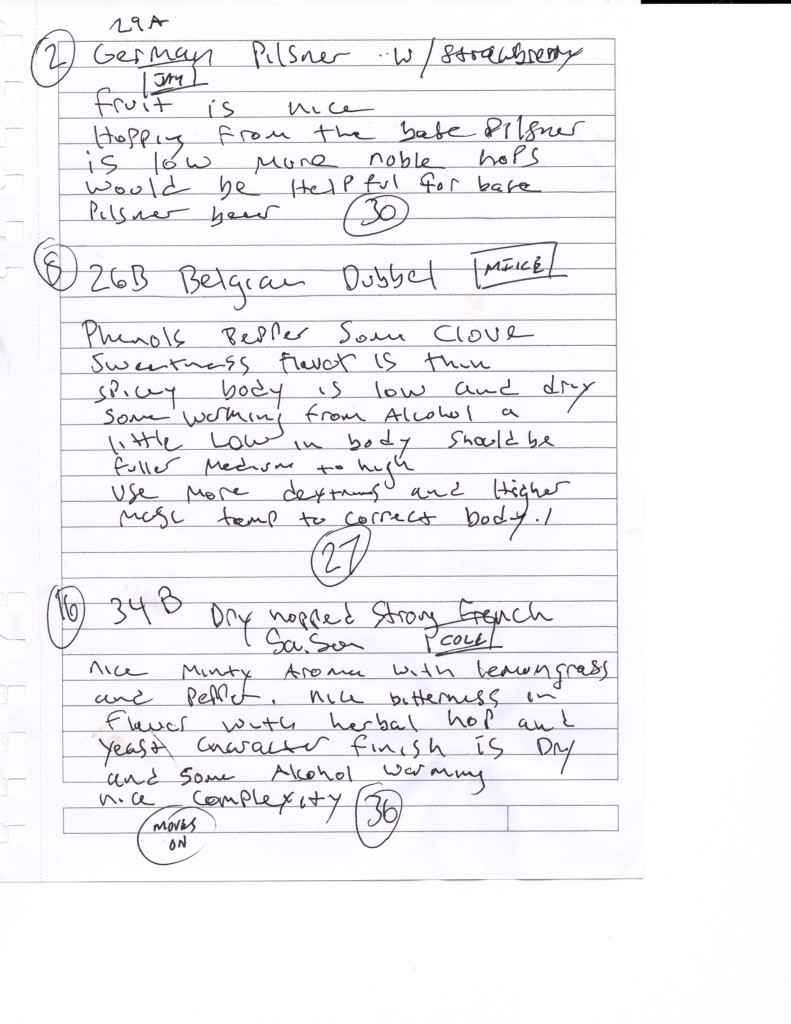 29A
2 German Pilsner w/ strawberry
JAY
fruit is nice
Hopping from the base Pilsner
is low more noble hops
would be Helpful for base
Pilsner beer 30
8 26B Belgian Dubbel MIKE
Phenols Pepper Some Clove
Sweetness flavor is thin
spicey body is low and dry
some warming from Alcohol a
little Low in body should be
fuller medium to high
use more dextrins and Higher
mash temp to correct body.
27
16 34B Dry hopped Strong French
Saison COLE
nice minty Aroma with lemongrass
and Pepper. nice bitterness in
flavor with herbal hop and
yeast character finish is Dry
and some Alcohol warming
nice complexity 36
MOVES
ON